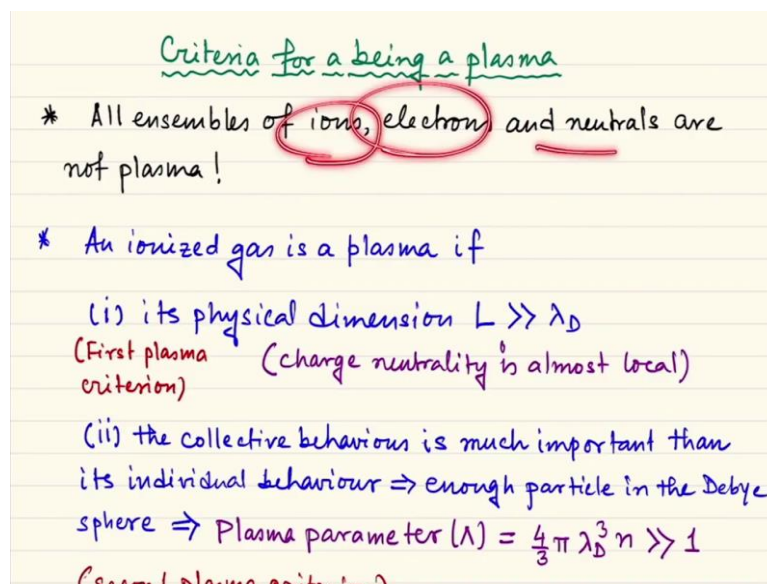 Criteria for a being a plasma
* All ensembles of ions, electron and neutrals are
not plasma!
* An ionized gas is a plasma if
(i) its physical dimension L >> λ_D
(First plasma (charge neutrality is almost local)
criterion)
(ii) the collective behaviour is much important than
its individual behaviour ⇒ enough particle in the Debye
sphere ⇒ Plasma parameter (Λ) = 4/3 π λ_D^3 n >> 1